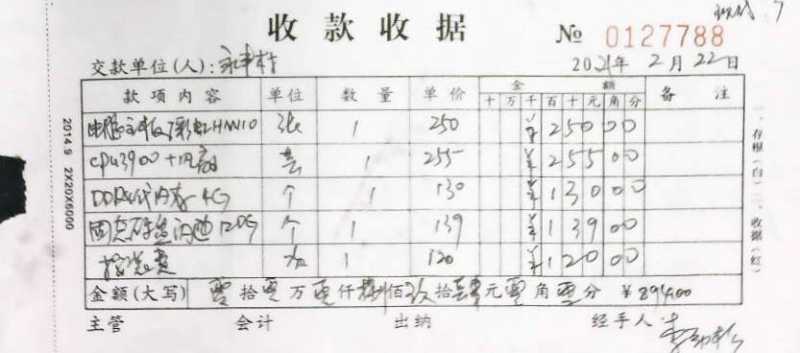 收款收据
№ 0127788
交款单位(人): 永丰村 2021年 2月 22日
款项内容 单位 数量 单价 金额 十 万 千 百 十 元 角 分 备注
电脑主板七彩虹H110 张 1 250 ¥ 2 5 0 0 0
CPU3900+风扇 套 1 255 ¥ 2 5 5 0 0
DDR4代内存 4G 个 1 130 ¥ 1 3 0 0 0
固态硬盘闪迪120G 个 1 139 ¥ 1 3 9 0 0
1 120 ¥ 1 2 0 0 0
金额(大写) 零拾零万零仟捌佰玖拾肆元零角零分 ¥894.00
主管 会计 出纳 经手人
2014.9 2X20X6000
一、存根(白) 二、收据(红)